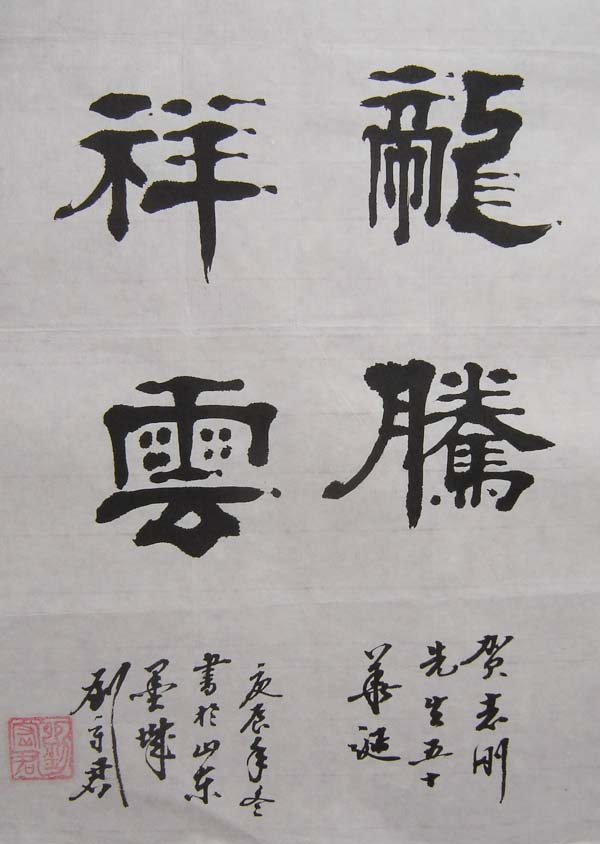 龍騰
祥雲
贺志刚
先生五十
華诞
庚辰年冬
書於山东
墨城
刘守君